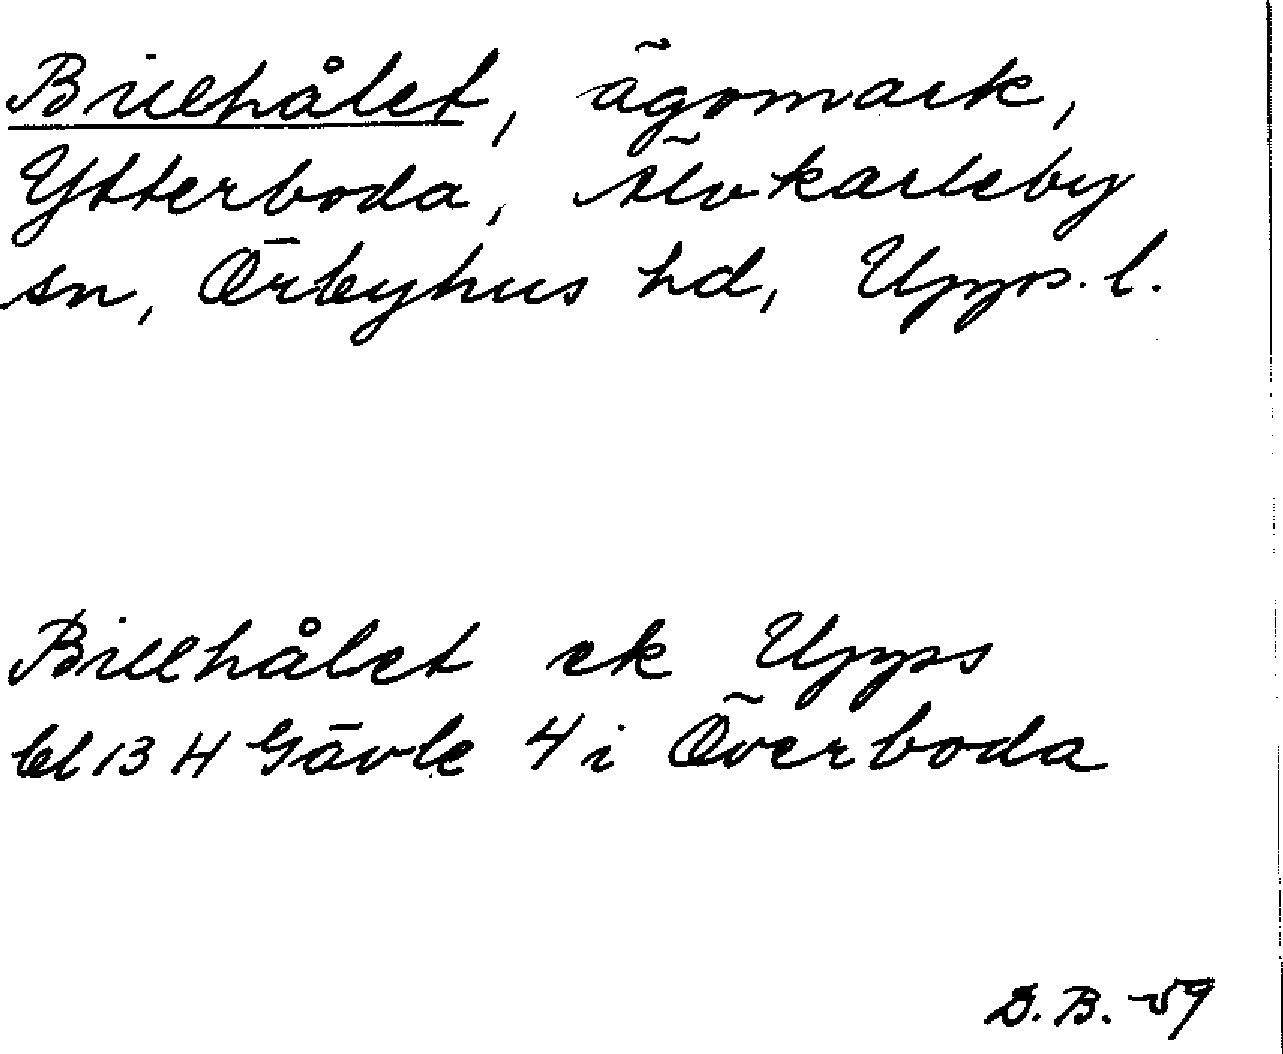 Billhålet, ägomark,
Ytterboda, Älvkarleby
sn, Örbyhus hd, Upps. l.
Billhålet ek Upps
bl 13 H Gävle 4 i Överboda
D. B. -59